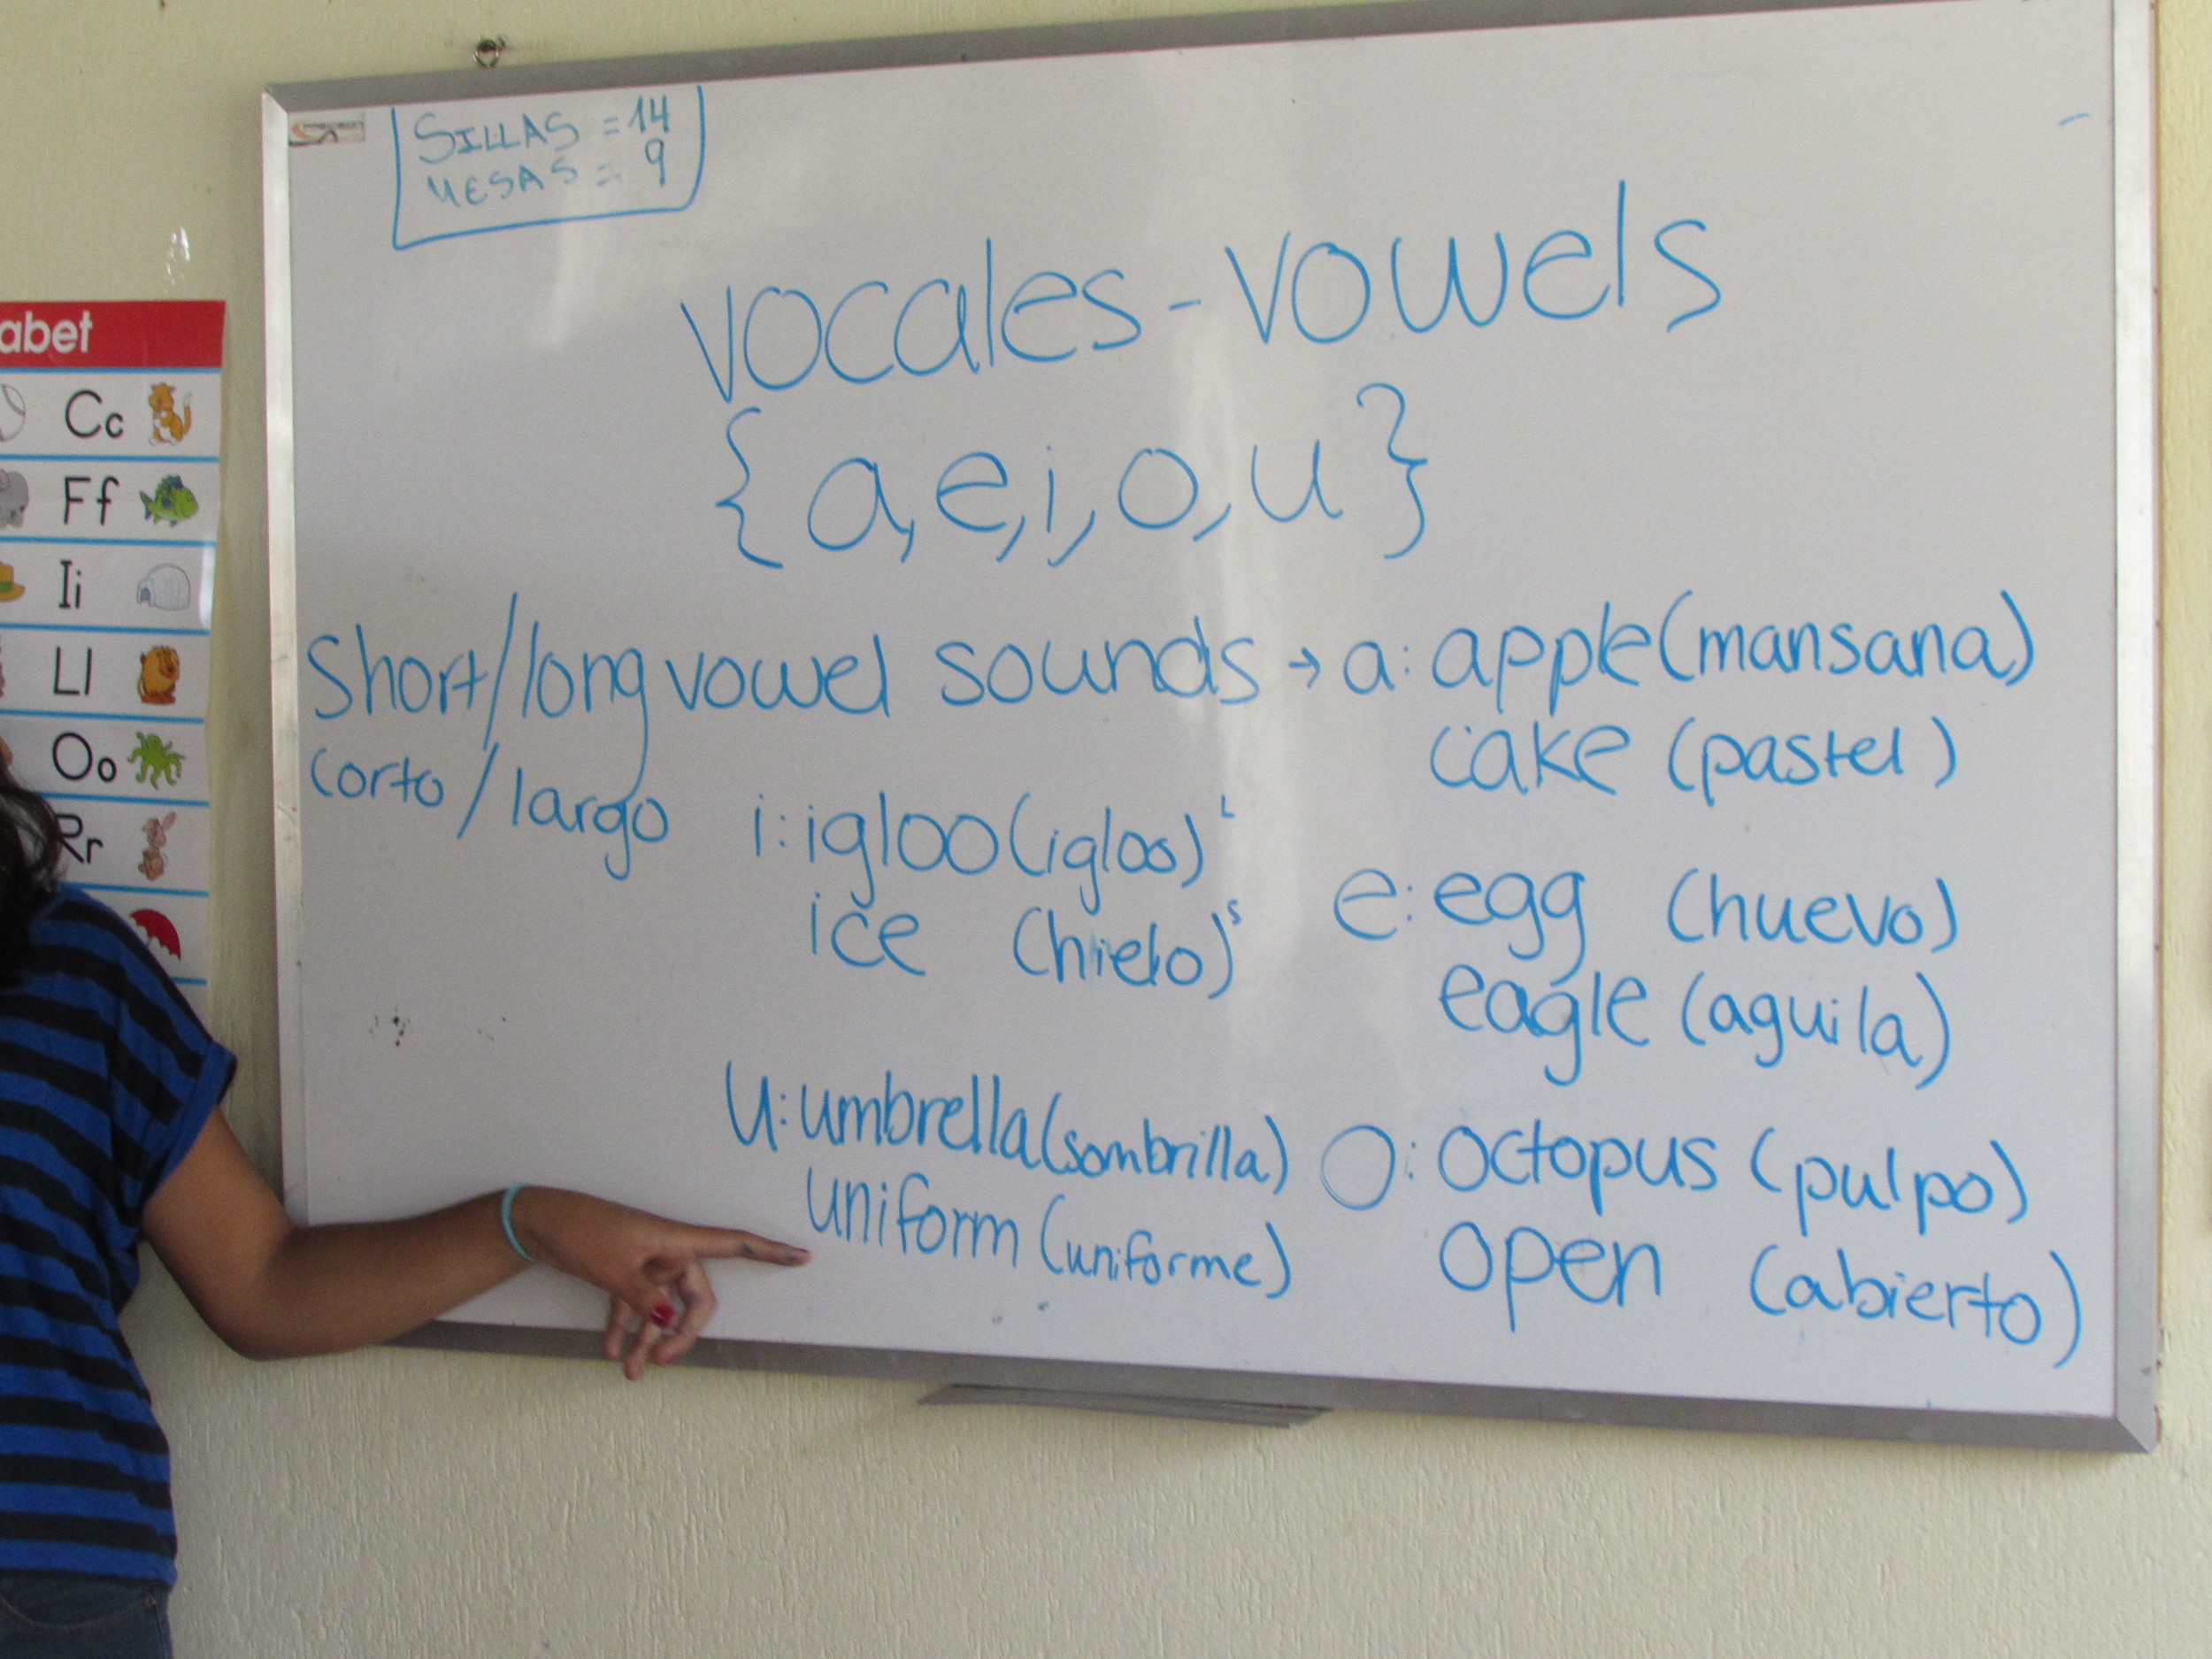 SILLAS = 14
MESAS = 9
vocales - vowels
{a, e, i, o, u}
short/long vowel sounds → a: apple (mansana)
cake (pastel)
corto/largo
i: igloo (igloo) L
ice (hielo) s
e: egg (huevo)
eagle (aguila)
u: umbrella (sombrilla)
uniform (uniforme)
o: octopus (pulpo)
open (abierto)
abet
Cc
Ff
Ii
Ll
Oo
Rr